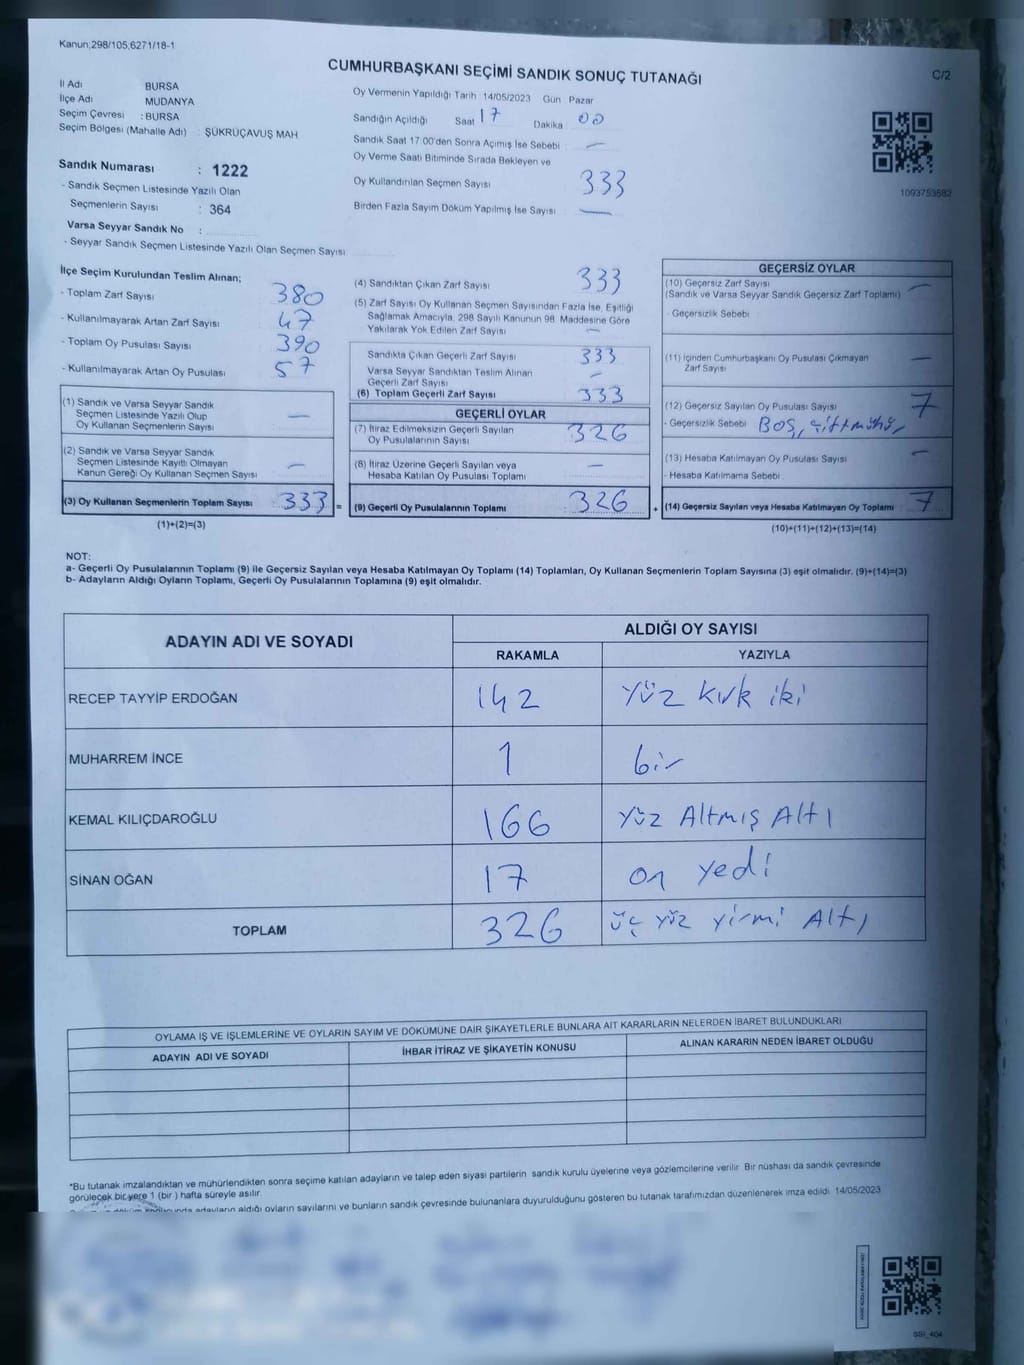 Kanun;298/105,6271/18-1
CUMHURBAŞKANI SEÇİMİ SANDIK SONUÇ TUTANAĞI
C/2
İl Adı BURSA
İlçe Adı MUDANYA
Seçim Çevresi : BURSA
Seçim Bölgesi (Mahalle Adı) : ŞÜKRÜÇAVUŞ MAH
Sandık Numarası : 1222
- Sandık Seçmen Listesinde Yazılı Olan
Seçmenlerin Sayısı : 364
Varsa Seyyar Sandık No :
- Seyyar Sandık Seçmen Listesinde Yazılı Olan Seçmen Sayısı:
Oy Vermenin Yapıldığı Tarih :14/05/2023 Gün Pazar
Sandığın Açıldığı Saat 17 Dakika 00
Sandık Saat 17:00'den Sonra Açımış İse Sebebi : —
Oy Verme Saati Bitiminde Sırada Bekleyen ve
Oy Kullandırılan Seçmen Sayısı 333
Birden Fazla Sayım Döküm Yapılmış İse Sayısı —
1093753682
İlçe Seçim Kurulundan Teslim Alınan;
- Toplam Zarf Sayısı 380
- Kullanılmayarak Artan Zarf Sayısı 47
- Toplam Oy Pusulası Sayısı 390
- Kullanılmayarak Artan Oy Pusulası 57
(1) Sandık ve Varsa Seyyar Sandık
Seçmen Listesinde Yazılı Olup
Oy Kullanan Seçmenlerin Sayısı —
(2) Sandık ve Varsa Seyyar Sandık
Seçmen Listesinde Kayıtlı Olmayan
Kanun Gereği Oy Kullanan Seçmen Sayısı —
(3) Oy Kullanan Seçmenlerin Toplam Sayısı 333 =
(1)+(2)=(3)
(4) Sandıktan Çıkan Zarf Sayısı 333
(5) Zarf Sayısı Oy Kullanan Seçmen Sayısından Fazla İse, Eşitliği
Sağlamak Amacıyla, 298 Sayılı Kanunun 98. Maddesine Göre
Yakılarak Yok Edilen Zarf Sayısı —
Sandıkta Çıkan Geçerli Zarf Sayısı 333
Varsa Seyyar Sandıktan Teslim Alınan
Geçerli Zarf Sayısı —
(6) Toplam Geçerli Zarf Sayısı 333
GEÇERLİ OYLAR
(7) İtiraz Edilmeksizin Geçerli Sayılan
Oy Pusulalarının Sayısı 326
(8) İtiraz Üzerine Geçerli Sayılan veya
Hesaba Katılan Oy Pusulası Toplamı —
(9) Geçerli Oy Pusulalarının Toplamı 326 +
GEÇERSİZ OYLAR
(10) Geçersiz Zarf Sayısı —
(Sandık ve Varsa Seyyar Sandık Geçersiz Zarf Toplamı)
- Geçersizlik Sebebi
(11) İçinden Cumhurbaşkanı Oy Pusulası Çıkmayan
Zarf Sayısı —
(12) Geçersiz Sayılan Oy Pusulası Sayısı 7
- Geçersizlik Sebebi Boş, çift mühür
(13) Hesaba Katılmayan Oy Pusulası Sayısı —
- Hesaba Katılmama Sebebi
(14) Geçersiz Sayılan veya Hesaba Katılmayan Oy Toplamı 7
(10)+(11)+(12)+(13)=(14)
NOT:
a- Geçerli Oy Pusulalarının Toplamı (9) ile Geçersiz Sayılan veya Hesaba Katılmayan Oy Toplamı (14) Toplamları, Oy Kullanan Seçmenlerin Toplam Sayısına (3) eşit olmalıdır. (9)+(14)=(3)
b- Adayların Aldığı Oyların Toplamı, Geçerli Oy Pusulalarının Toplamına (9) eşit olmalıdır.
ADAYIN ADI VE SOYADI ALDIĞI OY SAYISI
RAKAMLA YAZIYLA
RECEP TAYYİP ERDOĞAN 142 Yüz kırk iki
MUHARREM İNCE 1 bir
KEMAL KILIÇDAROĞLU 166 Yüz Altmış Altı
SİNAN OĞAN 17 on yedi
TOPLAM 326 üç yüz yirmi Altı
OYLAMA İŞ VE İŞLEMLERİNE VE OYLARIN SAYIM VE DÖKÜMÜNE DAİR ŞİKAYETLERLE BUNLARA AİT KARARLARIN NELERDEN İBARET BULUNDUKLARI
ADAYIN ADI VE SOYADI İHBAR İTİRAZ VE ŞİKAYETİN KONUSU ALINAN KARARIN NEDEN İBARET OLDUĞU
*Bu tutanak imzalandıktan ve mühürlendikten sonra seçime katılan adayların ve talep eden siyasi partilerin sandık kurulu üyelerine veya gözlemcilerine verilir. Bir nüshası da sandık çevresinde
görülecek bir yere 1 (bir ) hafta süreyle asılır.
adayların aldığı oyların sayılarını ve bunların sandık çevresinde bulunanlara duyurulduğunu gösteren bu tutanak tarafımızdan düzenlenerek imza edildi. 14/05/2023
SSI_404